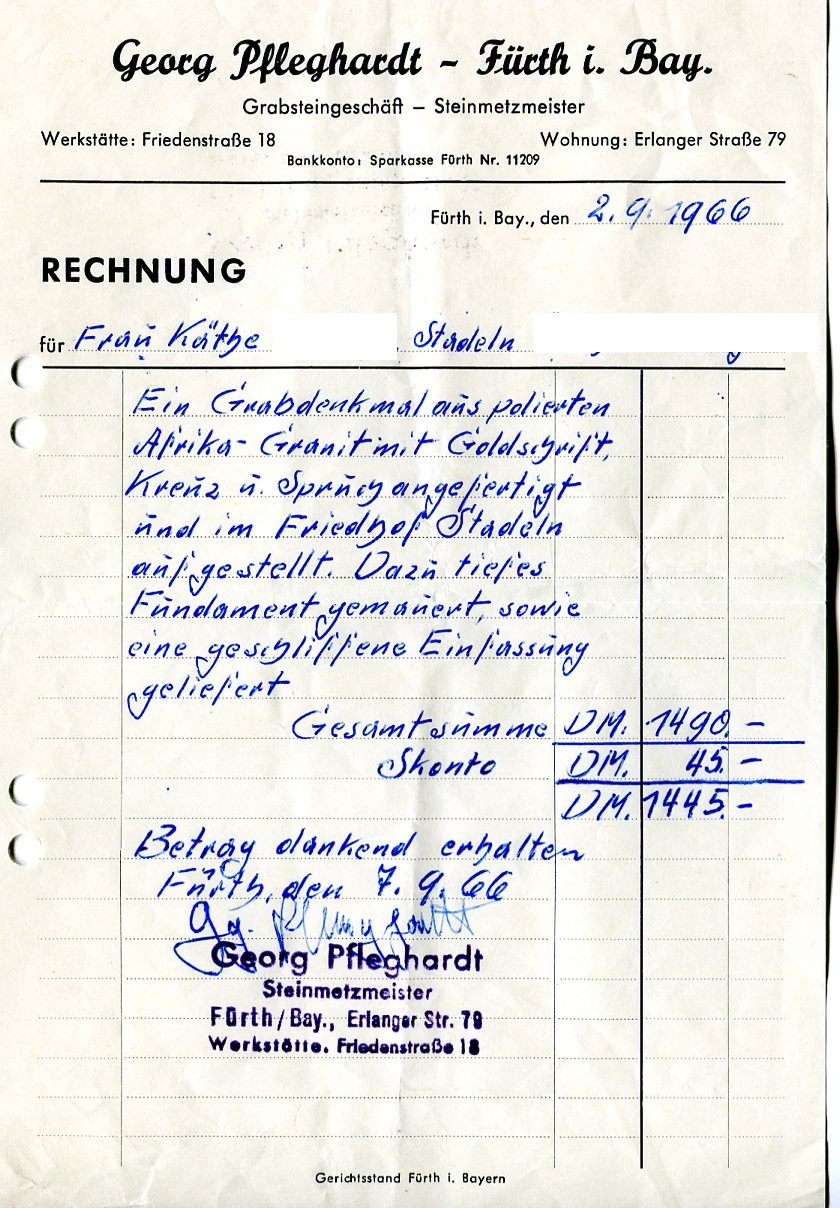 Georg Pfleghardt - Fürth i. Bay.
Grabsteingeschäft – Steinmetzmeister
Werkstätte: Friedenstraße 18 Wohnung: Erlanger Straße 79
Bankkonto: Sparkasse Fürth Nr. 11209
Fürth i. Bay., den 2.9.1966
RECHNUNG
für Frau Käthe , Stadeln
Ein Grabdenkmal aus polierten
Afrika-Granit mit Goldschrift,
Kreuz u. Spruch angefertigt
und im Friedhof Stadeln
aufgestellt. Dazu tiefes
Fundament gemauert, sowie
eine geschliffene Einfassung
geliefert
Gesamtsumme DM. 1490.-
Skonto DM. 45.-
DM. 1445.-
Betrag dankend erhalten
Fürth, den 7.9.66
Gg. Pfleghardt
Georg Pfleghardt
Steinmetzmeister
Fürth/Bay., Erlanger Str. 79
Werkstätte. Friedenstraße 18
Gerichtsstand Fürth i. Bayern